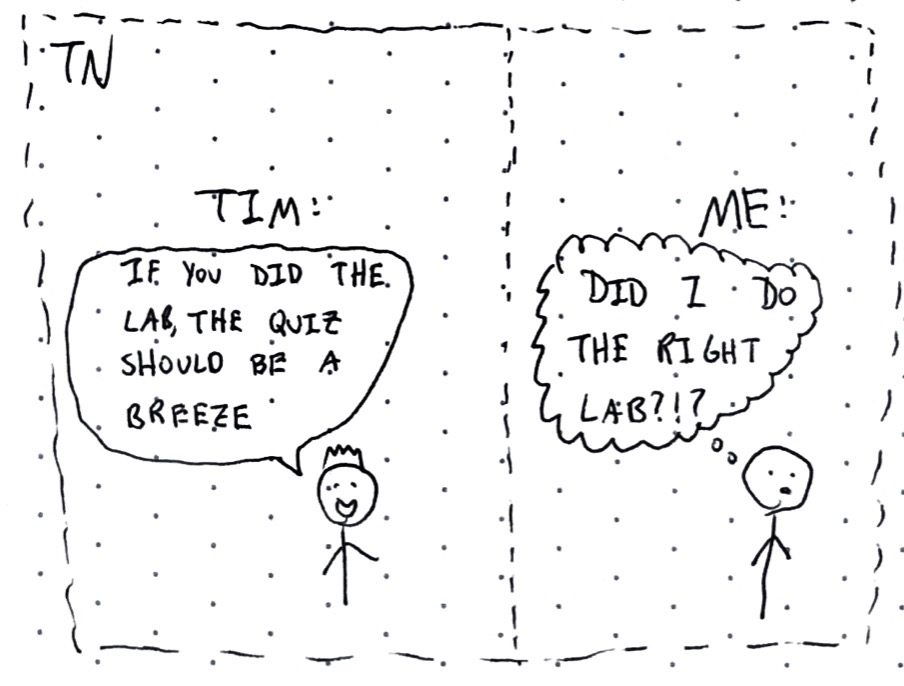 TN
TIM:
IF YOU DID THE
LAB, THE QUIZ
SHOULD BE A
BREEZE
ME:
DID I DO
THE RIGHT
LAB?!?